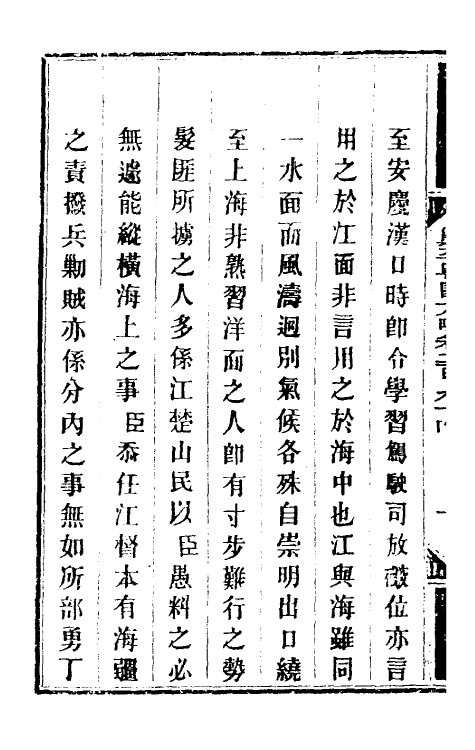 至安慶漢口時卽令學習駕駛司放礮位亦言
用之於江面非言用之於海中也江與海雖同
一水面而風濤迥別氣候各殊自崇明出口繞
至上海非熟習洋面之人卽有寸步難行之勢
髮匪所擄之人多係江楚山民以臣愚料之必
無遽能縱橫海上之事臣忝任江督本有海疆
之責撥兵勦賊亦係分內之事無如所部勇丁